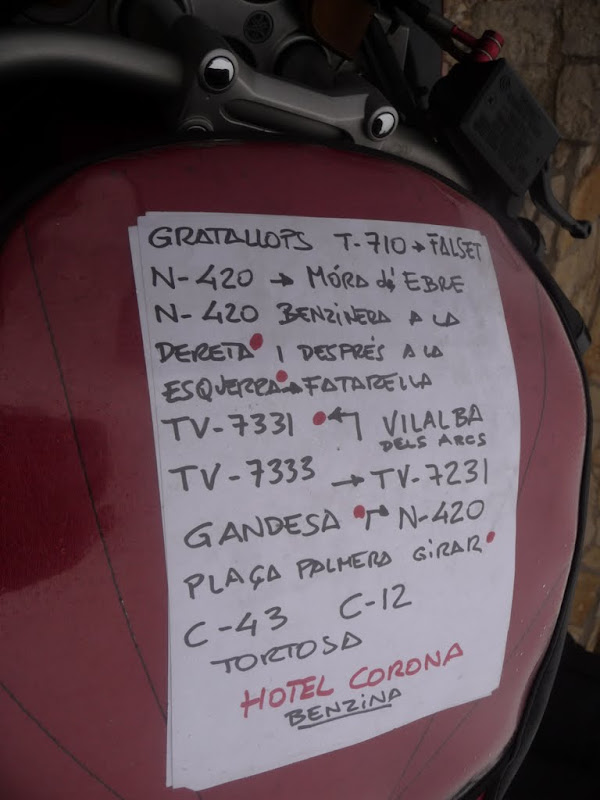 GRATALLOPS T-710 → FALSET
N-420 → MÓRA d'EBRE
N-420 BENZINERA A LA
DERETA I DESPRÉS A LA
ESQUERRA → FATARELLA
TV-7331 ↰ VILALBA
DELS ARCS
TV-7333 → TV-7231
GANDESA ↱ N-420
PLAÇA PALMERA GIRAR
C-43 C-12
TORTOSA
HOTEL CORONA
BENZINA